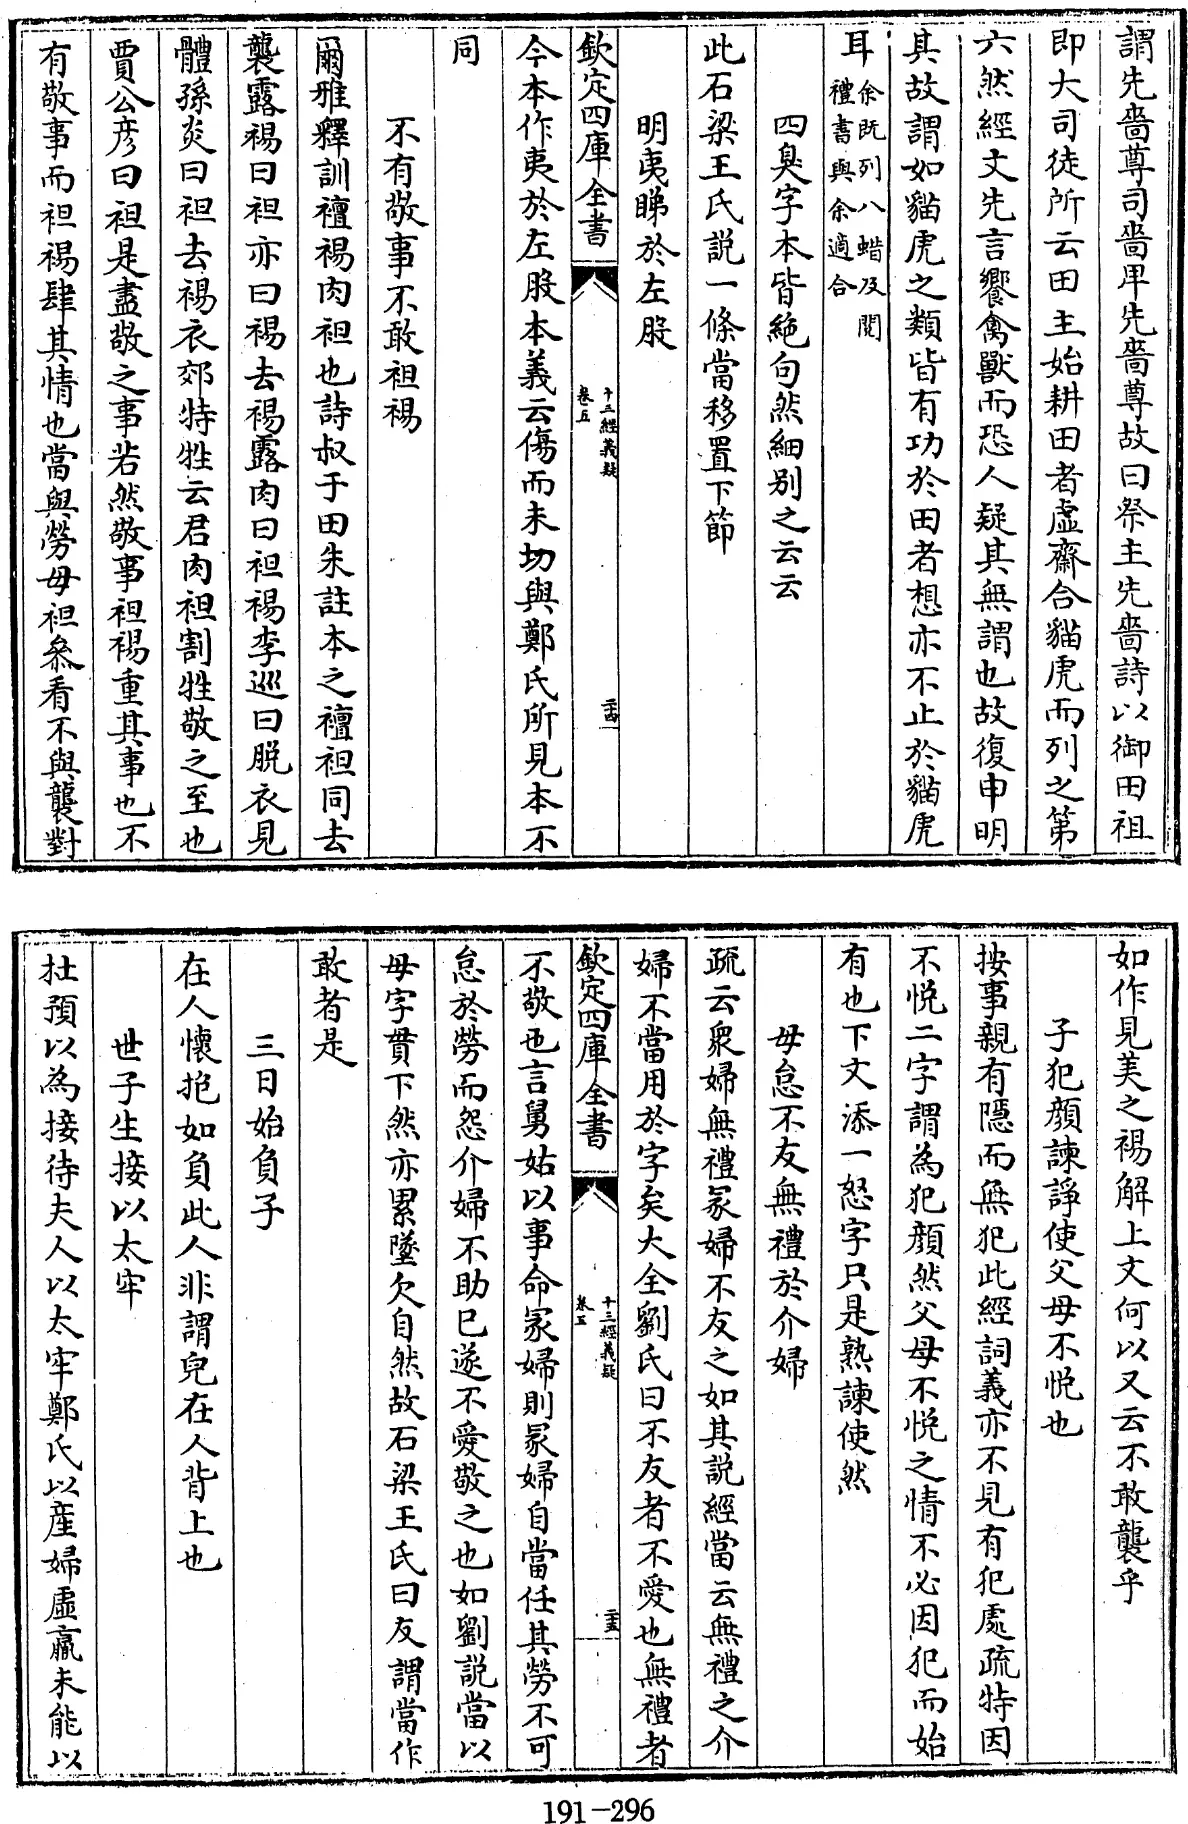 謂先嗇尊司嗇甲先嗇尊故曰祭主先嗇詩以御田祖
即大司徒所云田主始耕田者虛齋合貓虎而列之第
六然經文先言饗禽獸而恐人疑其無謂也故復申明
其故謂如貓虎之類皆有功於田者想亦不止於貓虎
耳余既列八蜡及閱禮書與余適合
四臭字本皆絶句然細别之云云
此石梁王氏説一條當移置下節
明夷睇於左股
欽定四庫全書
十三經義疑
卷五
二十四
今本作夷於左股本義云傷而未切與鄭氏所見本不
同
不有敬事不敢袒裼
爾雅釋訓襢裼肉袒也詩叔于田朱註本之襢袒同去
襲露裼曰袒亦曰裼去裼露肉曰袒裼李巡曰脱衣見
體孫炎曰袒去裼衣郊特牲云君肉袒割牲敬之至也
賈公彦曰袒是盡敬之事若然敬事袒裼重其事也不
有敬事而袒裼肆其情也當與勞毋袒叅看不與襲對
如作見美之裼解上文何以又云不敢襲乎
子犯顔諫諍使父母不悦也
按事親有隱而無犯此經詞義亦不見有犯處疏特因
不悦二字謂為犯顔然父母不悦之情不必因犯而始
有也下文添一怒字只是熟諫使然
毋怠不友無禮於介婦
疏云衆婦無禮冢婦不友之如其説經當云無禮之介
婦不當用於字矣大全劉氏曰不友者不愛也無禮者
欽定四庫全書
十三經義疑
卷五
二十五
不敬也言舅姑以事命冢婦則冢婦自當任其勞不可
怠於勞而怨介婦不助已遂不愛敬之也如劉説當以
毋字貫下然亦累墜欠自然故石梁王氏曰友謂當作
敢者是
三日始負子
在人懷抱如負此人非謂兒在人背上也
世子生接以太牢
杜預以為接待夫人以太牢鄭氏以産婦虛羸未能以
191-296